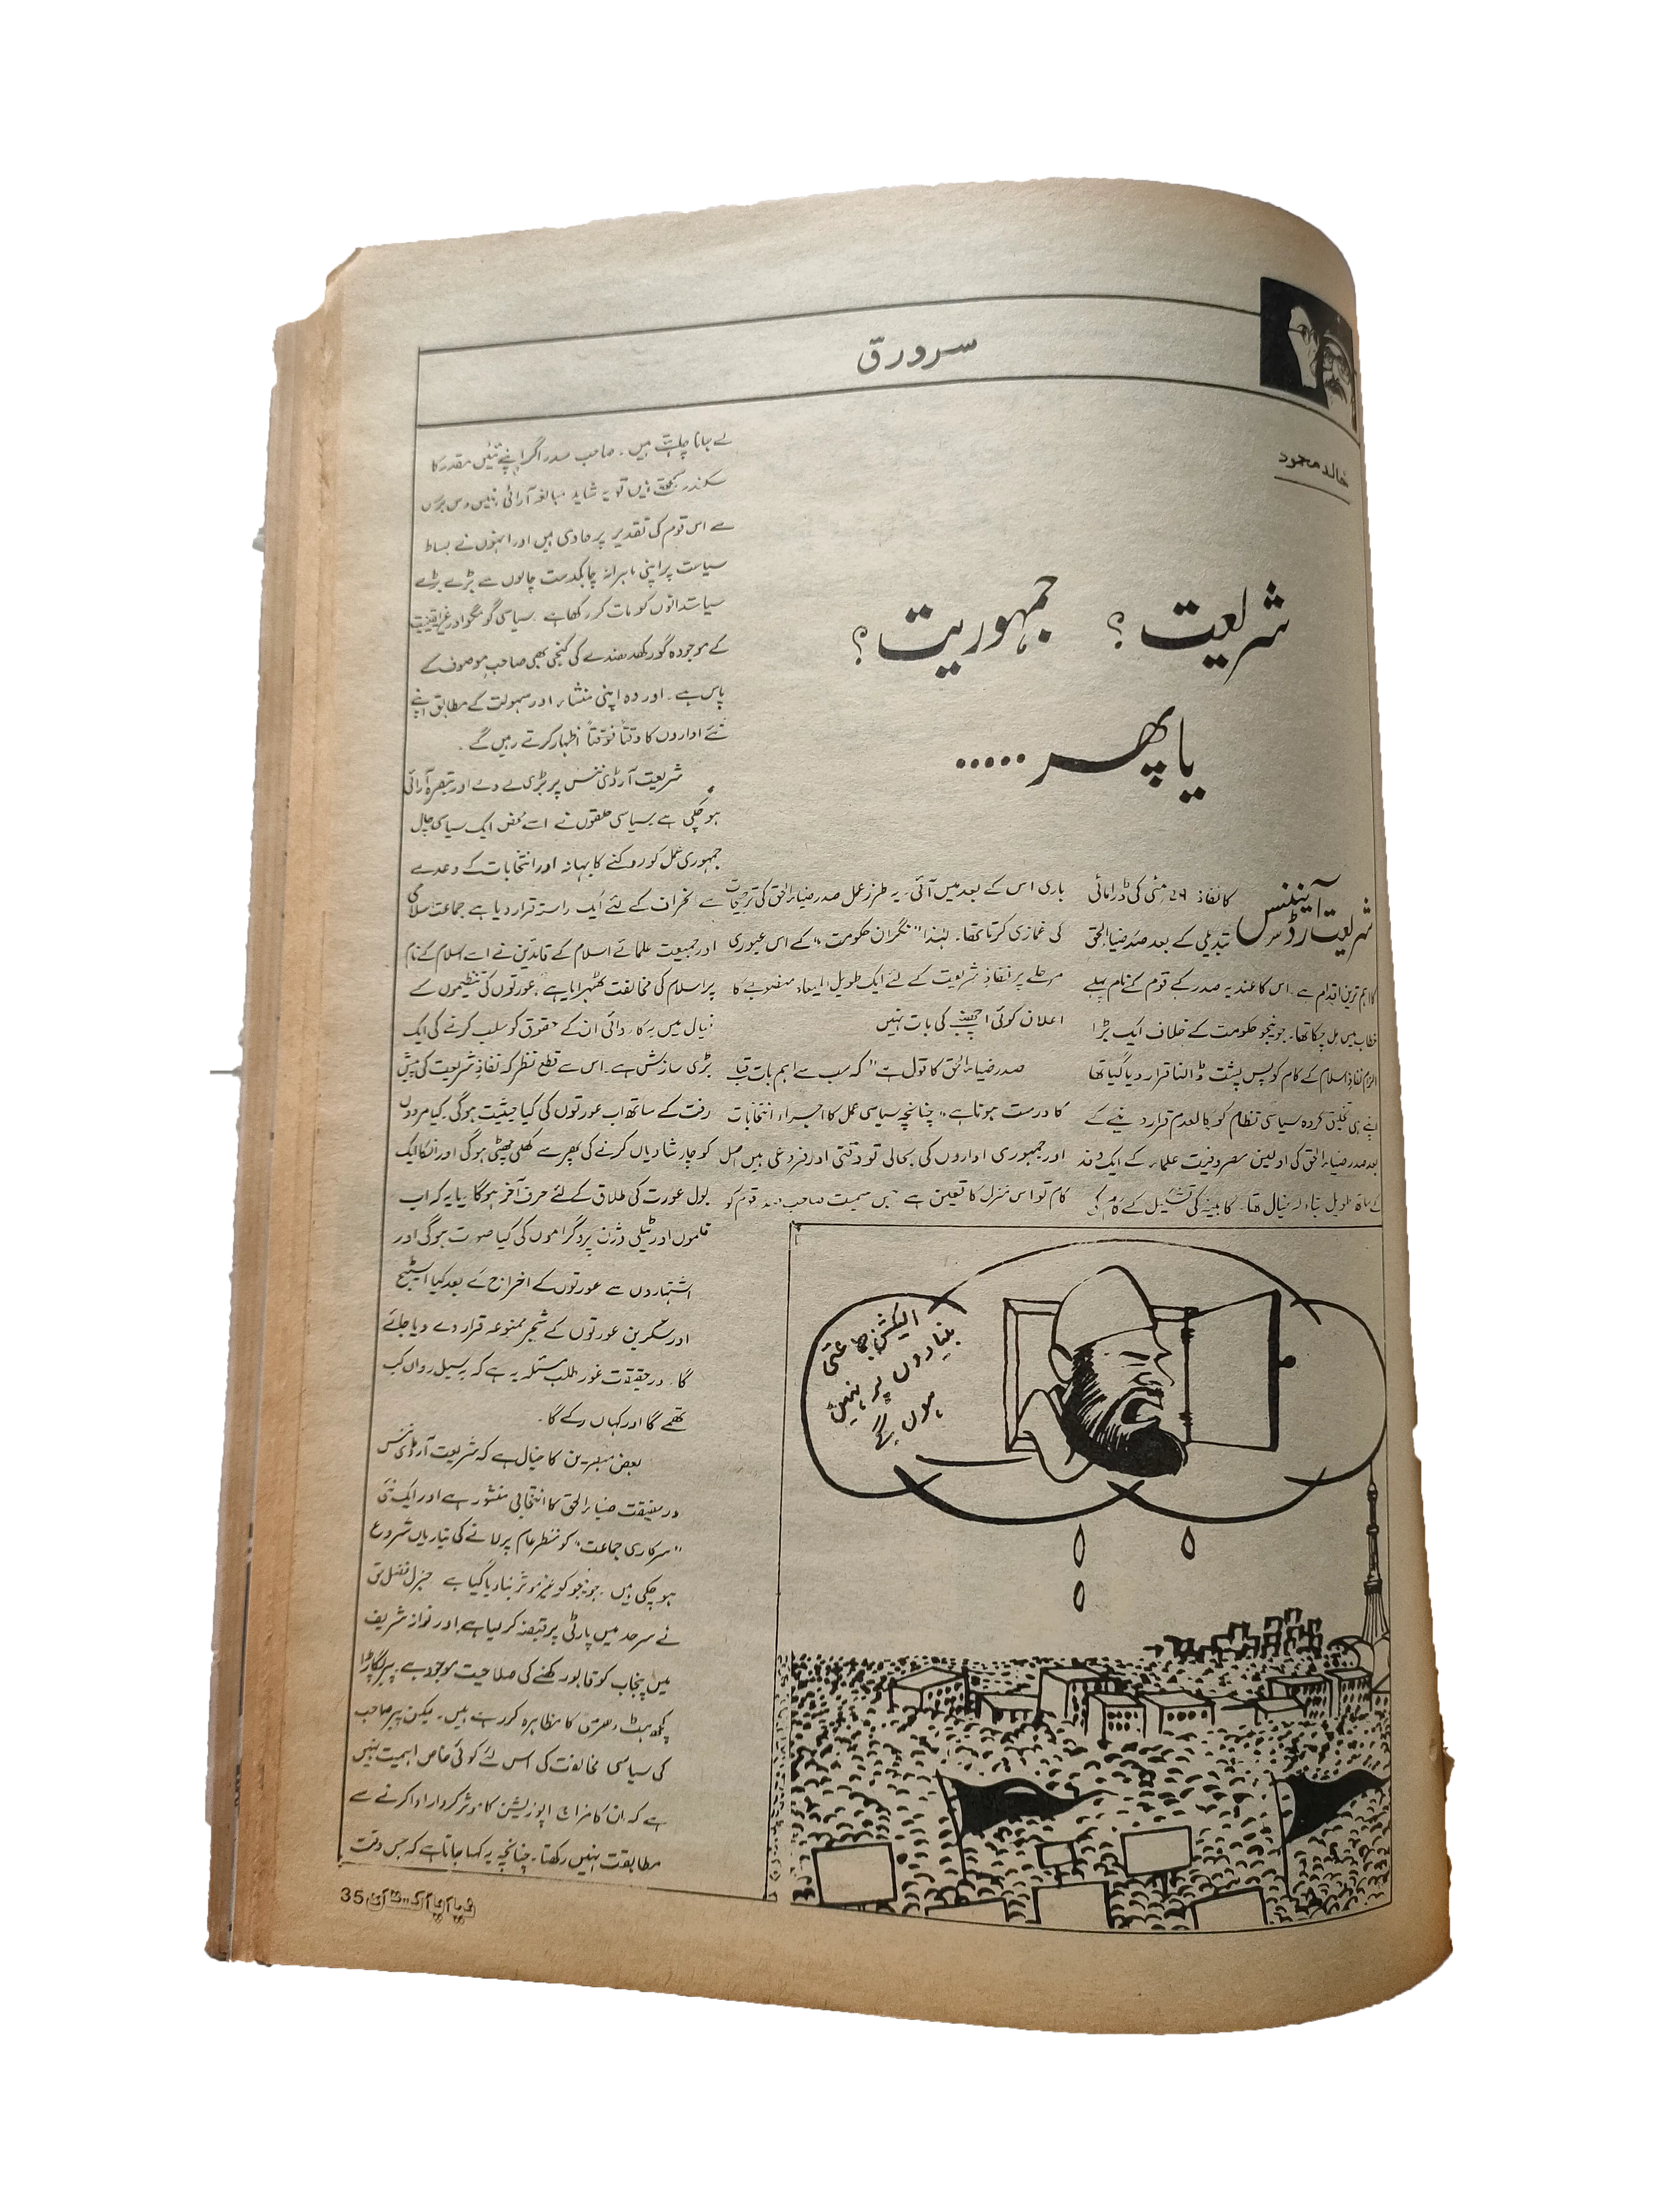 سرورق
خالد محمود
شریعت؟ جمہوریت؟
یا پھر .....
شریعت آرڈیننس کا نفاذ 29 مئی کی ڈرامائی
تبدیلی کے بعد صدر ضیاءالحق
کا اہم ترین اقدام ہے۔ اس کا عندیہ صدر کے قوم کے نام پہلے
خطاب میں مل چکا تھا۔ جونیجو حکومت کے خلاف ایک بڑا
الزام نفاذ اسلام کے کام کو پس پشت ڈالنا قرار دیا گیا تھا
اپنے ہی تخلیق کردہ سیاسی نظام کو کالعدم قرار دینے کے
بعد صدر ضیاءالحق کی اولین مصروفیت علماء کے ایک وفد
کے ساتھ طویل تبادلہ خیال تھا۔ کابینہ کی تشکیل کے کام کی
باری اس کے بعد میں آئی۔ یہ طرز عمل صدر ضیاءالحق کی ترجیحات
کی غمازی کرتا تھا۔ لہٰذا "نگران حکومت" کے اس عبوری
مرحلے پر نفاذِ شریعت کے لئے ایک طویل المیعاد منصوبے کا
اعلان کوئی اچنبھے کی بات نہیں
صدر ضیاءالحق کا قول ہے "کہ سب سے اہم بات قبلہ
کا درست ہونا ہے" چنانچہ سیاسی عمل کا اجراء انتخابات
اور جمہوری اداروں کی بحالی تو وقتی اور فروعی ہیں اصل
کام تو اس منزل کا تعین ہے جس سمیت صاحب صدر قوم کو
لے جانا چاہتے ہیں۔ صاحب صدر اگر اپنے تئیں مقدر کا
سکندر سمجھتے ہیں تو یہ شاید مبالغہ آرائی نہیں دس برس
سے اس قوم کی تقدیر پر حاوی ہیں اور انہوں نے بساط
سیاست پر اپنی ماہرانہ چابکدست چالوں سے بڑے بڑے
سیاستدانوں کو مات کر رکھا ہے۔ سیاسی گومگو اور غیر یقینیت
کے موجودہ گورکھ دھندے کی کنجی بھی صاحب موصوف کے
پاس ہے۔ اور وہ اپنی منشاء اور سہولت کے مطابق اپنے
نئے اداروں کا وقتاً فوقتاً اظہار کرتے رہیں گے۔
شریعت آرڈی ننس پر بڑی لے دے اور تبصرہ آرائی
ہو چکی ہے سیاسی حلقوں نے اسے محض ایک سیاسی چال
جمہوری عمل کو روکنے کا بہانہ اور انتخابات کے وعدے
سے انحراف کے لئے ایک راستہ قرار دیا ہے جماعت اسلامی
اور جمیعت علمائے اسلام کے قائدین نے اسے اسلام کے نام
پر اسلام کی مخالفت ٹھہرایا ہے، عورتوں کی تنظیموں کے
خیال میں یہ کارروائی ان کے حقوق کو سلب کرنے کی ایک
بڑی سازش ہے۔ اس سے قطع نظر کہ نفاذ شریعت کی پیش
رفت کے ساتھ اب عورتوں کی کیا حیثیت ہو گی۔ کیا مردوں
کو چار شادیاں کرنے کی پھر سے کھلی چھٹی ہو گی اور انکا ایک
بول عورت کی طلاق کے لئے حرف آخر ہو گا۔ یا یہ کہ اب
فلموں اور ٹیلی وژن پروگراموں کی کیا صورت ہو گی اور
اشتہاروں سے عورتوں کے اخراج کے بعد کیا اسٹیج
اور سکرین عورتوں کے شجر ممنوعہ قرار دے دیا جائے
گا۔ درحقیقت غور طلب مسئلہ یہ ہے کہ یہ سیل رواں کب
تھمے گا اور کہاں رکے گا۔
بعض مبصرین کا خیال ہے کہ شریعت آرڈی ننس
درحقیقت ضیاءالحق کا انتخابی منشور ہے اور ایک نئی
"سرکاری جماعت" کو منظر عام پر لانے کی تیاریاں شروع
ہو چکی ہیں۔ جونیجو کو غیر موثر بنا دیا گیا ہے جنرل فضل حق
نے سرحد میں پارٹی پر قبضہ کر لیا ہے اور نواز شریف
میں پنجاب کو قابو رکھنے کی صلاحیت موجود ہے۔ پیر پگاڑا
کچھ ہٹ دھرمی کا مظاہرہ کر رہے ہیں۔ لیکن پیر صاحب
کی سیاسی مخالفت کی اس لئے کوئی خاص اہمیت نہیں
ہے کہ ان کا مزاج اپوزیشن کا موثر کردار ادا کرنے سے
مطابقت نہیں رکھتا۔ چنانچہ یہ کہا جاتا ہے کہ جس وقت
الیکشن جماعتی
بنیادوں پر نہیں
ہوں گے
نیا پاکستان 35